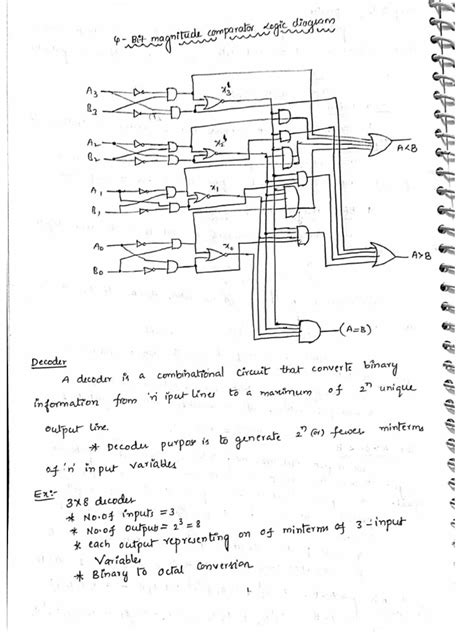 4-Bit magnitude comparator Logic diagram
A3
B3
x3
A2
B2
x2
A<B
A1
x1
B1
A0
x0
B0
A>B
(A=B)
Decoder
A decoder is a combinational circuit that converts binary
information from 'n' iput lines to a maximum of 2^n unique
output line.
* Decoder purpose is to generate 2^n (or) fewer minterms
of 'n' input variables
Ex:-
3x8 decoder
* No.of inputs = 3
* No.of outputs = 2^3 = 8
* each output representing on of minterms of 3-input
Variables
* Binary to octal Conversion